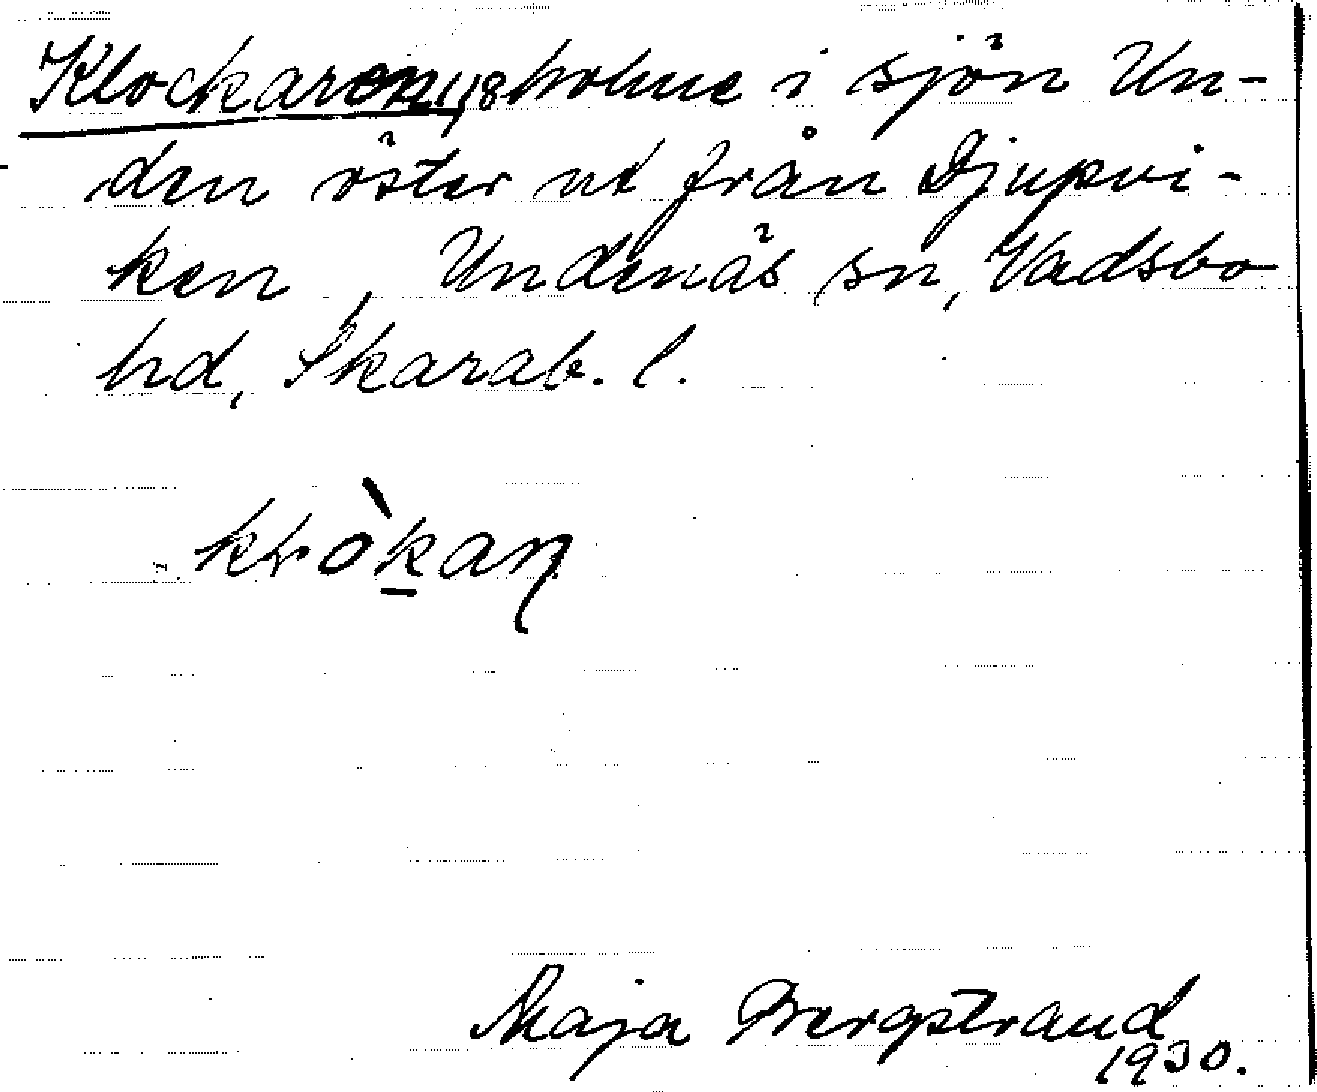 Klockaren, holme i sjön Un-
den öster ut från Djupvi-
ken, Undenäs sn, Vadsbo
hd, Skarab. l.
klòk̲aɳ
Maja Bergstrand
1930.